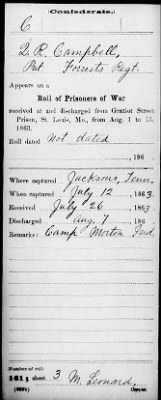 Confederate.
C
D. R. Campbell
Pvt. Forrests Regt.
Appears on a
Roll of Prisoners of War
received at and discharged from Gratiot Street
Prison, St. Louis, Mo., from Aug. 1 to 15,
1863.
Roll dated Not dated
, 186
Where captured Jackson, Tenn.
When captured July 12, 1863
Received July 26, 1863
Discharged Aug 7, 186
Remarks: Camp Morton Ind.
Number of roll:
161; sheet 3 M. Leonard
Copyist.